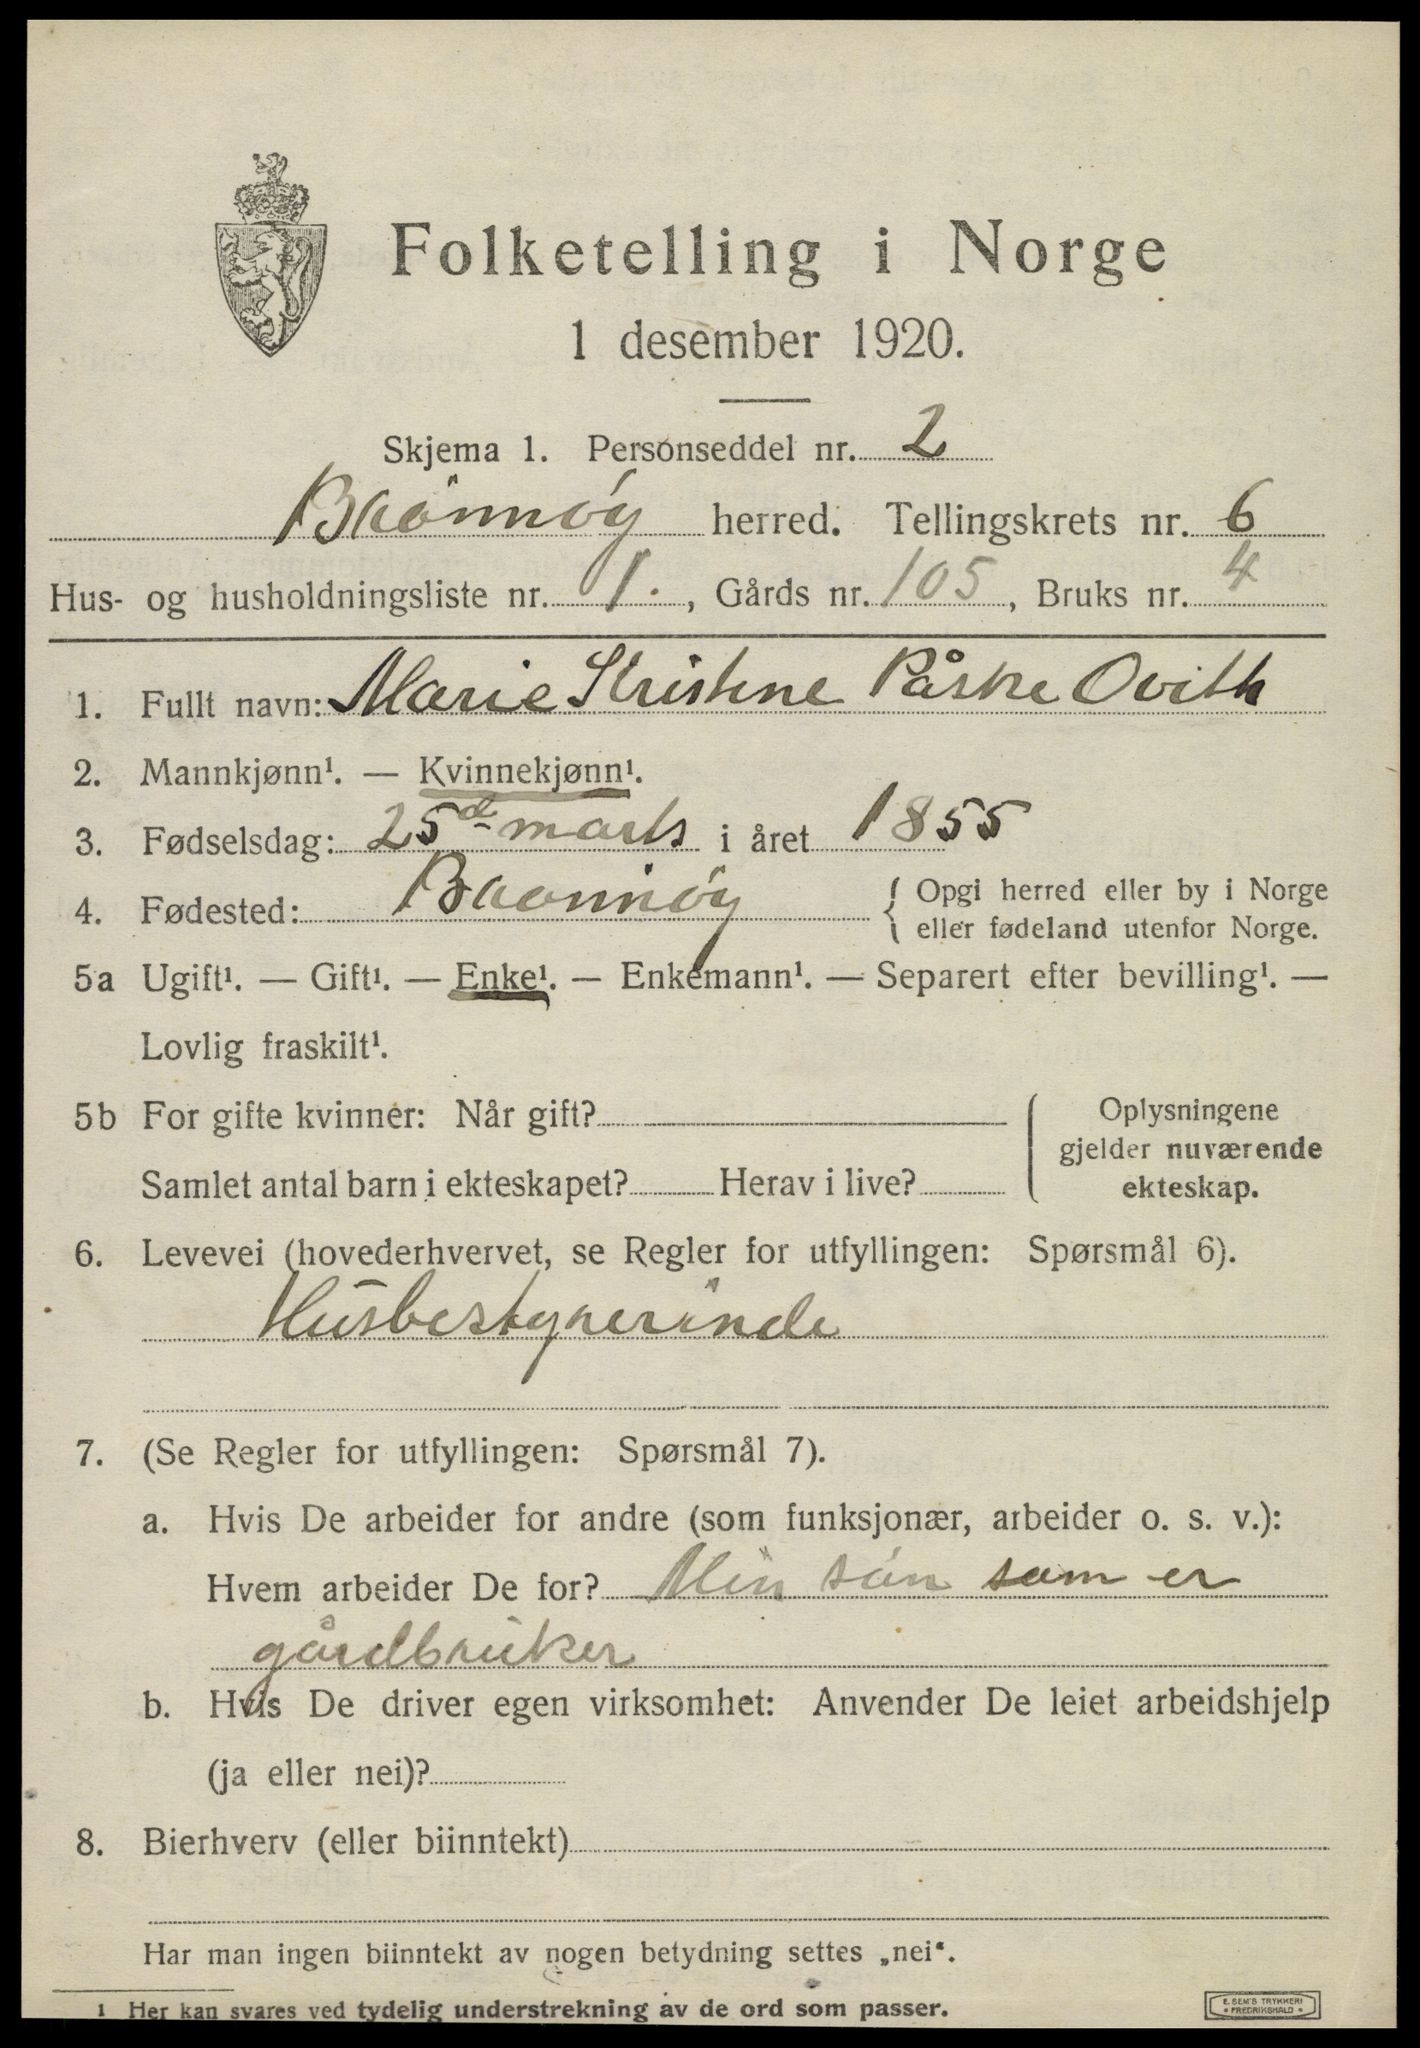 Folketelling i Norge
1 desember 1920.
Skjema 1. Personseddel nr. 2
Brønnøy herred. Tellingskrets nr. 6
Hus- og husholdningsliste nr. 1. , Gårds nr. 105, Bruks nr. 4
1. Fullt navn: Marie Kristine Påske Qvith
2. Mannkjønn¹. — Kvinnekjønn¹.
3. Fødselsdag: 25de marts i året 1855
4. Fødested: Brønnøy { Opgi herred eller by i Norge
eller fødeland utenfor Norge.
5a Ugift¹. — Gift¹. — Enke¹. — Enkemann¹. — Separert efter bevilling¹. —
Lovlig fraskilt¹.
5b For gifte kvinner: Når gift? { Oplysningene
gjelder nuværende
Samlet antal barn i ekteskapet? Herav i live? ekteskap.
6. Levevei (hovederhvervet, se Regler for utfyllingen: Spørsmål 6).
Husbestyrerinde
7. (Se Regler for utfyllingen: Spørsmål 7).
a. Hvis De arbeider for andre (som funksjonær, arbeider o. s. v.):
Hvem arbeider De for? Min søn som er
gårdbruker
b. Hvis De driver egen virksomhet: Anvender De leiet arbeidshjelp
(ja eller nei)?
8. Bierhverv (eller biinntekt)
Har man ingen biinntekt av nogen betydning settes „nei“.
1 Her kan svares ved tydelig understrekning av de ord som passer.
E. SEM'S TRYKKERI
• FREDRIKSHALD •